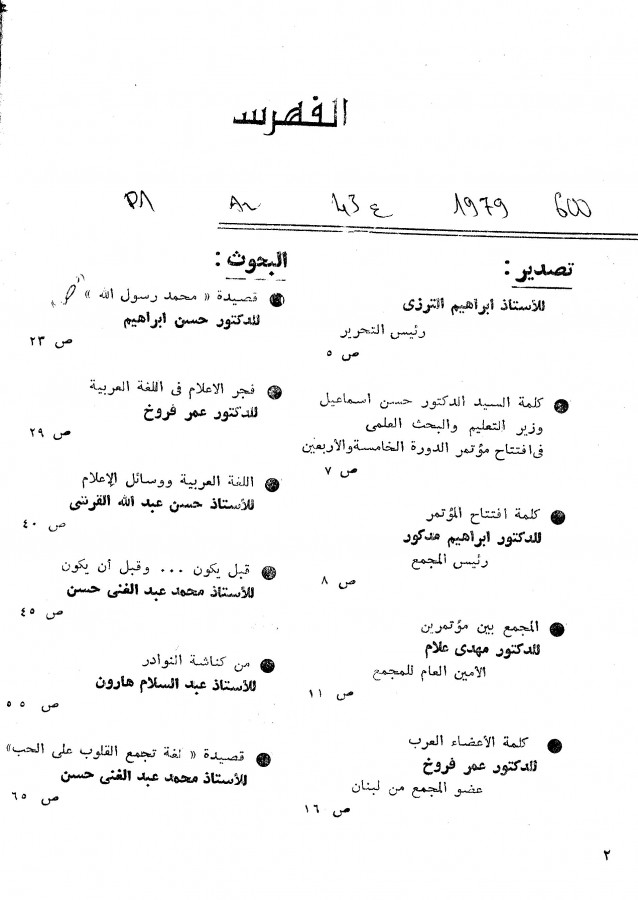 الفهرس
600 1979 43 ع
تصدير :
للأستاذ ابراهيم الترزى
رئيس التحرير
ص ٥
كلمة السيد الدكتور حسن اسماعيل
وزير التعليم والبحث العلمى
فى افتتاح مؤتمر الدورة الخامسة والأربعين
ص ٧
كلمة افتتاح المؤتمر
للدكتور ابراهيم مدكور
رئيس المجمع
ص ٨
المجمع بين مؤتمرين
للدكتور مهدى علام
الأمين العام للمجمع
ص ١١
كلمة الأعضاء العرب
للدكتور عمر فروخ
عضو المجمع من لبنان
ص ١٦
البحوث :
قصيدة « محمد رسول الله »
للدكتور حسن ابراهيم
ص ٢٣
فجر الاعلام فى اللغة العربية
للدكتور عمر فروخ
ص ٢٩
اللغة العربية ووسائل الإعلام
للأستاذ حسن عبد الله القرشى
ص ٤٠
قبل يكون ... وقبل أن يكون
للأستاذ محمد عبد الغنى حسن
ص ٤٥
من كناشة النوادر
للأستاذ عبد السلام هارون
ص ٥٥
قصيدة « لغة تجمع القلوب على الحب»
للأستاذ محمد عبد الغنى حسن
ص ٦٥
٢